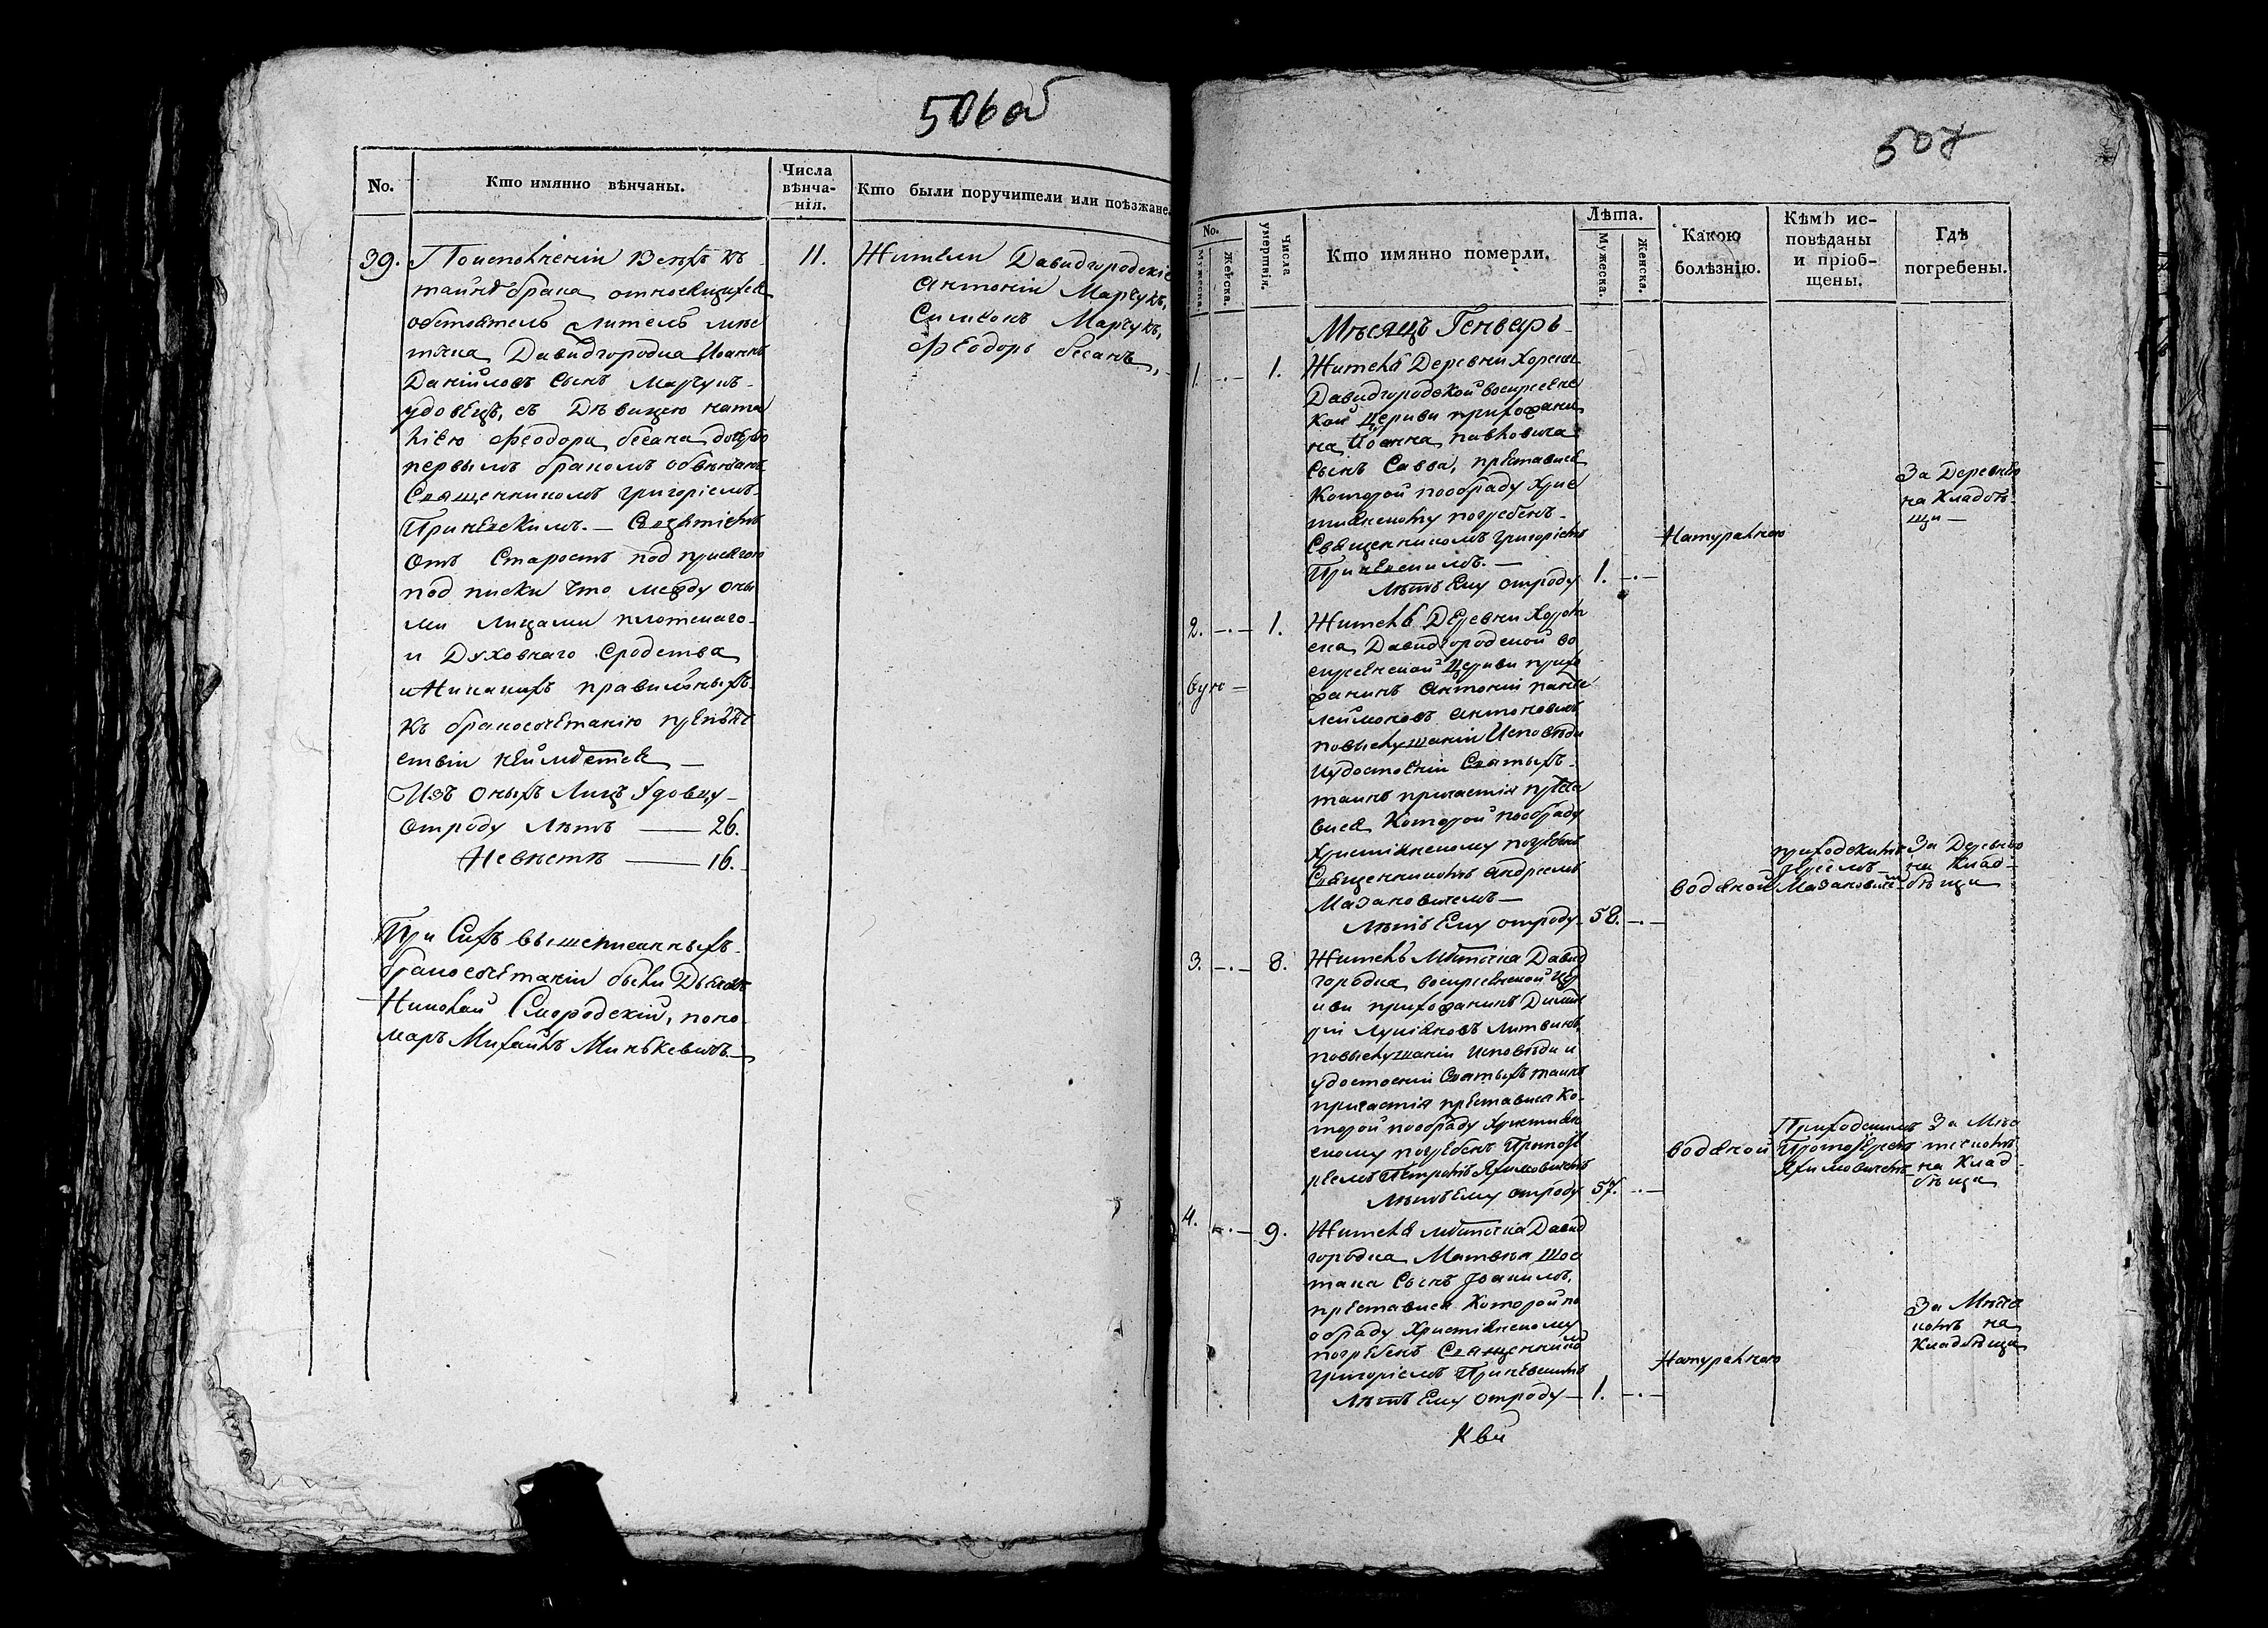 506 об
No.
Кто имянно вѣнчаны.
Числа
вѣнча-
нія.
Кто были поручители или поѣзжане.
39.
По исполненіи Всѣхъ къ
тайнѣ брака относящихся
обстоятельствъ житель мѣс
тѣчка Давидгородка Иоаннъ
Даніиловъ Сынъ Марчукъ
удовецъ, съ Дѣвицею ната
ліею Феодора бесана дочерью
первымъ бракомъ обвѣнчанъ
Священникомъ Григоріемъ
Принѣвскимъ. —
Отъ Старостъ под присягою
под писки что между оны
ми Лицами плотскаго
и Духовнаго Сродства
и Никакихъ правильныхъ
къ бракосочетанію препят
ствіи неимѣется —
Изъ оныхъ Лицъ удовцу
отроду Лѣтъ — 26.
Невѣстѣ — 16.
11.
Жители Давидгородскіе
Антоній Марчукъ,
Симеонъ Марчукъ,
Феодоръ бесанъ,
При Сихъ вышеписанныхъ
бракосочетаніи были Дьячокъ
Николай Смородскій, поно
марь Михаилъ Минкевичъ —
507
No.
Мужеска.
Женска.
Числа
умертвія.
Кто имянно померли.
Лѣта.
Мужеска.
Женска.
Какою
болѣзнію.
Кѣмъ ис-
повѣданы
и пріоб-
щены.
Гдѣ
погребены.
Мѣсяцъ Генварь
1. 1.
Житель Деревни Хорска
Давидгородской воскресенс
кой Церкви прихожани
на Иоанна павловича
Сынъ Савва, преставися
Которой по обряду Хрис
тианскому погребенъ
Священникомъ Григоріемъ
Принѣвскимъ. —
Лѣтъ Ему отроду 1.
Натуральною
За Деревнею
на Кладбѣ
щи —
2. 1.
Житель Деревни Хорска
Давидгородской во
скресенской Церкви прихо
жанинъ Антоній панте
леймоновъ Антоновичъ
по выслушаніи Исповѣди
И удостоеніи Святыхъ
таинъ причастія преста
вися Которой по обряду
Христіянскому погребенъ
Священникомъ Андреемъ
Мазановичемъ —
Лѣтъ Ему отроду 58.
водяной
приходскимъ
Иереемъ
Мазановичемъ
За Деревнею
на Клад-
бѣщи
3. 8.
Житель Мѣстечка Давид
городка воскресенской Цер
кви прихожанинъ Димит
рій Лукіяновъ Литвинъ
по выслушаніи исповѣди и
удостоеніи Святыхъ таинъ
причастія преставися Ко-
торой по обряду Християн
скому погребенъ Протоіе
реемъ Петромъ Яхимовичемъ
Лѣтъ Ему отроду 57.
водяной
Приходскимъ
Протоіереемъ
Яхимовичемъ
За Мѣс
течкомъ
на Клад-
бѣщи
4. 9.
Житель мѣстечка Давид
городка Матвѣя Шос
така Сынъ Иоакимъ,
преставися Которой по
обряду Христіянскому
погребенъ Священникомъ
Григоріемъ Принѣвскимъ
Лѣтъ Ему отроду — 1.
Натуральною
За Мѣстеч
комъ на
Кладбѣщи